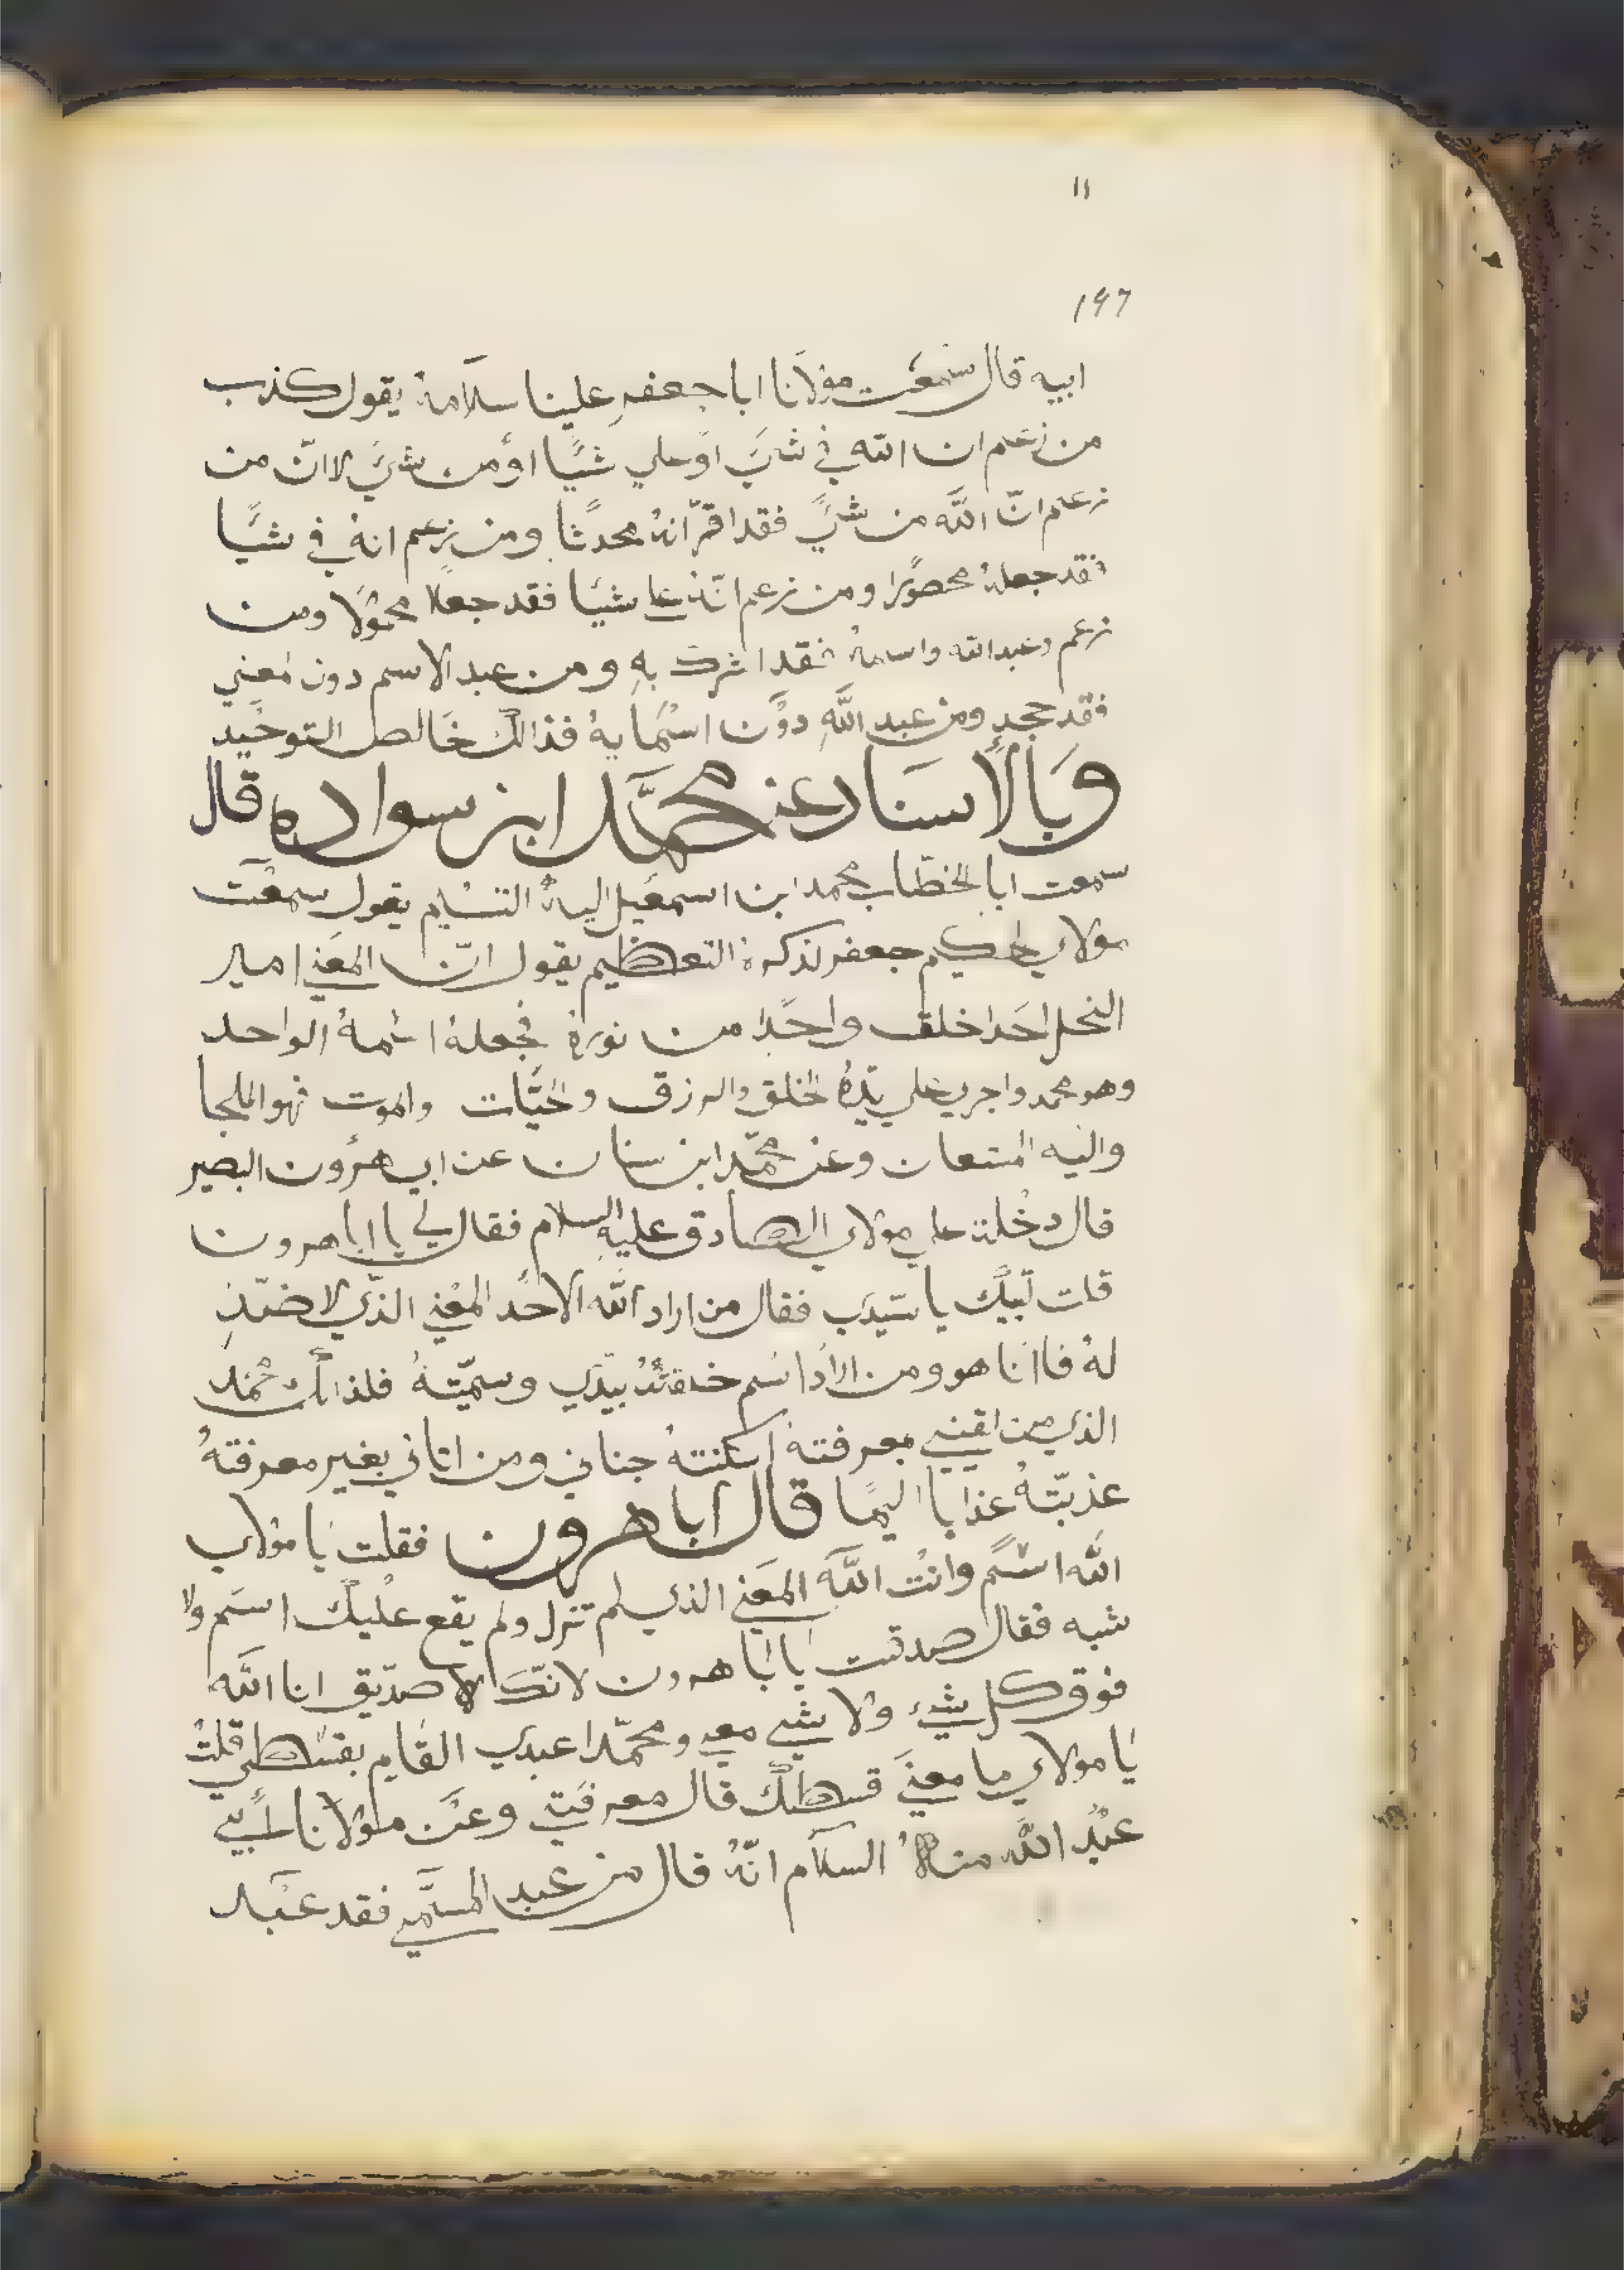 ١١
١٩٦
ابيه قال سمعت مولانا ابا جعفر علينا سلامهُ يقول كذب
من زعم ان الله في شيَ او علي شيًا او من شيَ لا انّ من
زعم انّ اللّه من شيً فقد اقرّ انهُ محدثًا ومن زعم انهُ في شيًا
فقد جعلهُ محصورًا ومن زعم انّهُ علي شيًا فقد جعلهُ محمولًا ومن
زعم وعبد الله واسمهُ فقد اشرك بهِ ومن عبد الاسم دون المعني
فقد جحد ومن عبد اللّهِ دون اسمايهُ فذالك خالص التوحيد
وَبالأسنَاد عن محمّد ابن سواده قال
سمعت ابا الخطّاب محمد ابن اسمعيل اليهُ التسليم يقول سمعت
مولاي الحكيم جعفر لذكرهُ التعظيم يقول انّ المعني امير
النحل احَدا خلق واحدًا من نورهُ فجعلهُ اسمهُ الواحد
وهو محمد واجري علي يدهُ الخلق والرزق والحيات والموت فهو الملجا
واليه المستعان وعن محمّد ابن سنان عن ابي هرون البصير
قال دخلت علي مولاي الصادق عليهِ السلام فقال لي يا ابا هرون
قلت لبيّك يا سيدي فقال من اراد اللّه الاحد المعني الذي لا ضدّ
لهُ فاانا هو ومن اراد اسم خلقتهُ بيدي وسمّيتهُ فلذالك محمد
الذي من معرفتهُ اسكنتهُ جناني ومن اتاني بغير معرفتهُ
عذبّتهُ عذابا اليمًا قال ابا هرون فقلت يَا مولاي
اللّه اسمً وانت اللّه المعني الذي لم تزل ولم يقع عليك اسَم ولا
شبه فقال صدقت يَا ابَا هرون لانّك الاصدّيق انا اللّه
فوق كل شيء ولا شي معي ومحمّدا عبدي القايم بقسطي قلت
يَا مولاي ما معنيَ قسطك قال معرفتي وعن مولانا لأبي
عبد اللّه منهُ السلام انّهُ قال من عبد المسمّي فقد عبد